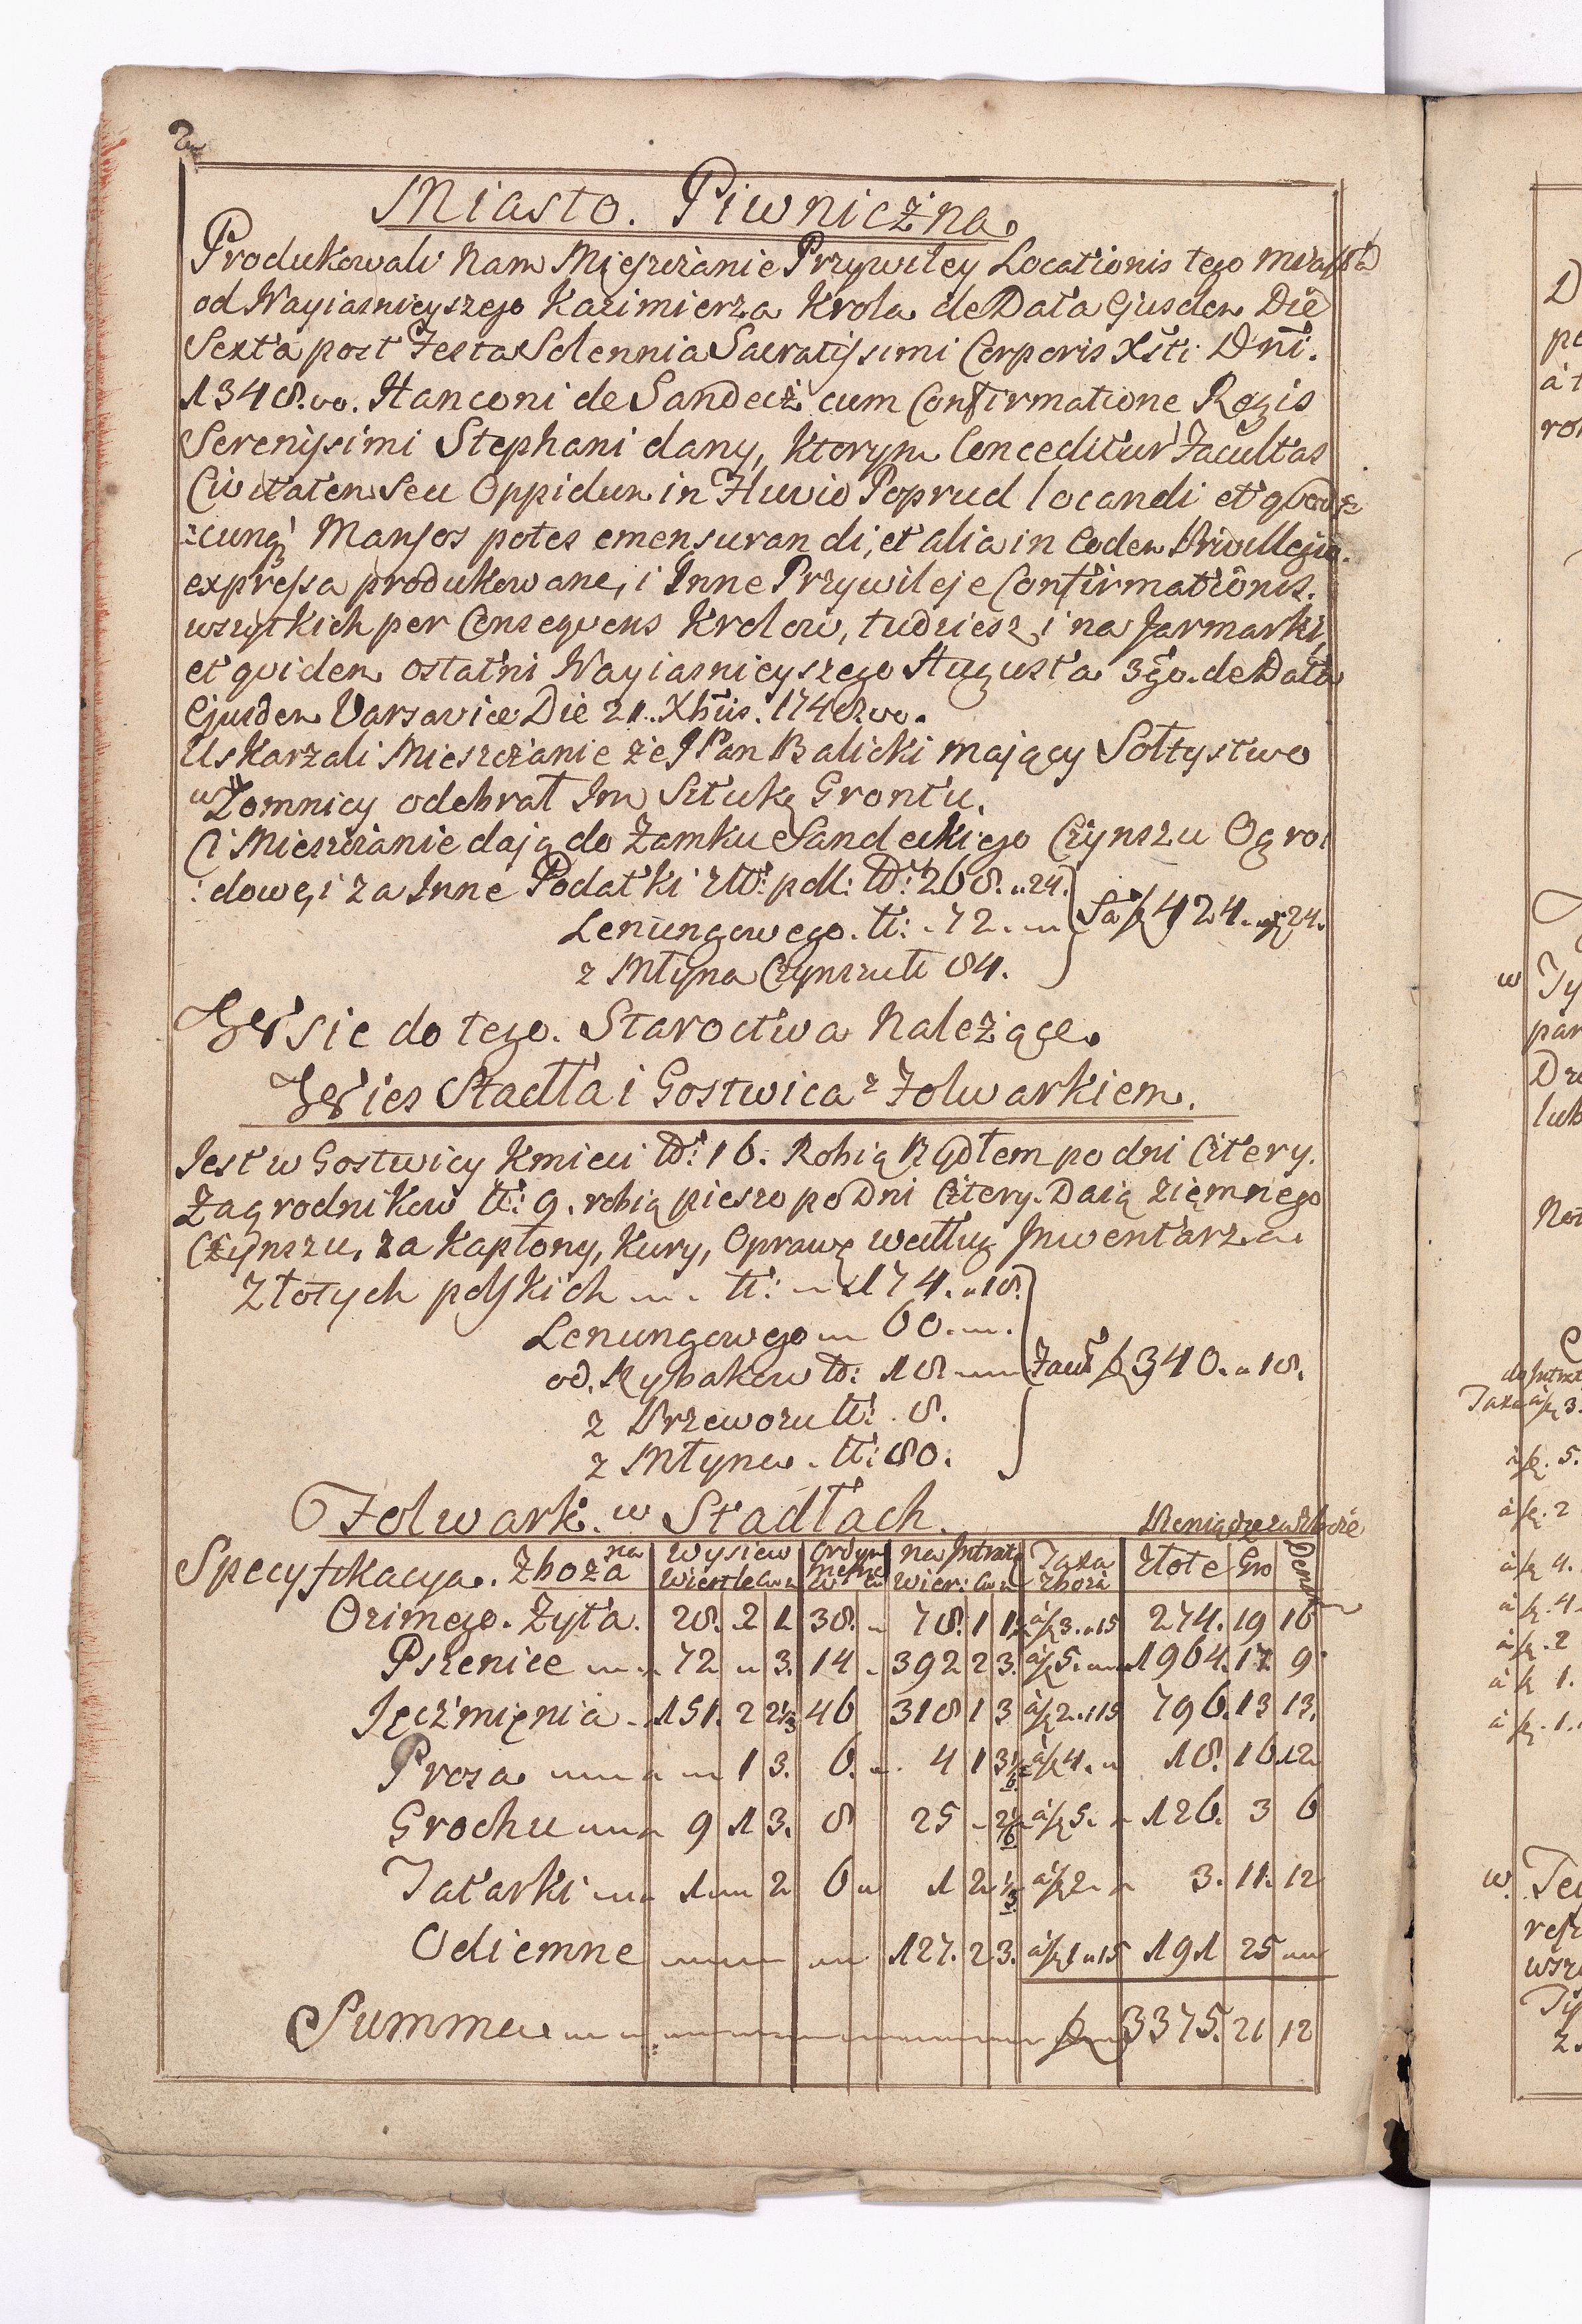 2
Miasto. Piwniczna.
Produkowali Nam Mięszczanie Przywiley Locationis tego miasta
od Nayiasnieyszego Kazimierza Krola de Data Ejusdem Die
Sexta post Festa Solennia Sacratissimi Corporis Xsti Dni.
1348.vo. Hanconi de Sandecz cum Confirmatione Regis
Serenissimi Stephani dany, Ktorym Conceditur Facultas
Civitatem seu Oppidum in Fluvio Poprud locandi et quods
:cunq Mansos potes emensurandi, et alia in Eodem Privillegio.
expressa produkowane, i Inne Przywileje Confirmationis.
wszystkich per Consequens Krolow, tudziesz i na Jarmarki,
et quidem ostatni Nayiasnieyszego Augusta 3go. de Data
Ejusdem Varsaviæ Die 21. Xbris. 1748.vo.
Uskarzali Mieszczanie że JPan Balicki mający Sołtystwo
w Łomnicy odebrał Im Sztukę Grontu.
Ci Mieszczanie dają do Zamku Sandeckiego Czynszu Ogro:
:dowe, i za Inne Podatki złł: pll: tt: 268. " 24.
Lenungowego. tt: " 72. "
Sa f 424. gr 24.
z Młyna Czynszu tt 84.
Wsie do tego. Staroctwa Należące.
Wies Stadła i Gostwica z Folwarkiem.
Jest w Gostwicy Kmieci tt: 16. Robią Bydłem po dni Cztery.
Zagrodnikow tt: 9. robią pieszo po Dni Cztery. Daią ziemnego
Czynszu, za Kapłony, Kury, Oprawę według Inwentarza
Złotych polskich tt: 174. " 18.
Lenungowego " 60. "
od. Rybakow tt: 18
Facit f 340. " 18.
z Przewozu tt: 8.
z Młyna. tt: 80.
Folwark. w Stadłach. Pieniądze za Zboże
Specyfikacya. Zboża na Wysiew Wiertle Ordyn na Intratę Wier: Taxa zboża Złote Gro Denar
Ozimego. Żyta. 28. 2 1 38. " 78. 1 1½ à f 3. " 15 274. 19 16
Pszenice 72 " 3. 14 " 392 2 3. à f 5. " 1964. 17. 9
Jęczmięnia 151. 2 2⅓ 46 318 1 3 à f 2. " 15 796. 13 13.
Prosa 1 3. 6. " 4 1 3⅙ à f 4. " 18. 16. 12
Grochu 9 1 3. 8 25 " 2⅙ à f 5. " 126. 3 6
Tatarki 1 " 2 6 " 1 2 ⅓ à f 2. " 3. 11. 12
Odiemne 127. 2 3. à f 1 " 15 191 25 "
Summa f 3375. 21 12